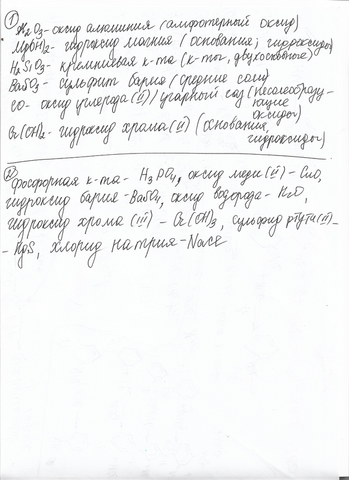 ① Al₂O₃ - оксид алюминия (амфотерный оксид)
Mg(OH)₂ - гидроксид магния (основания; гидроксиды)
H₂SiO₃ - кремниевая к-та (к-ты, двухосновные)
BaSO₃ - сульфит бария (средние соли)
CO - оксид углерода (II) / угарный газ (несолеобразу-
ющие
оксиды)
Cr(OH)₂ - гидроксид хрома (II) (основания,
гидроксиды)
② Фосфорная к-та - H₃PO₄, оксид меди (II) - CuO,
гидроксид бария - BaSO₄, оксид водорода - H₂O,
гидроксид хрома (III) - Cr(OH)₃, сульфид ртути (II) -
- HgS, хлорид натрия - NaCl